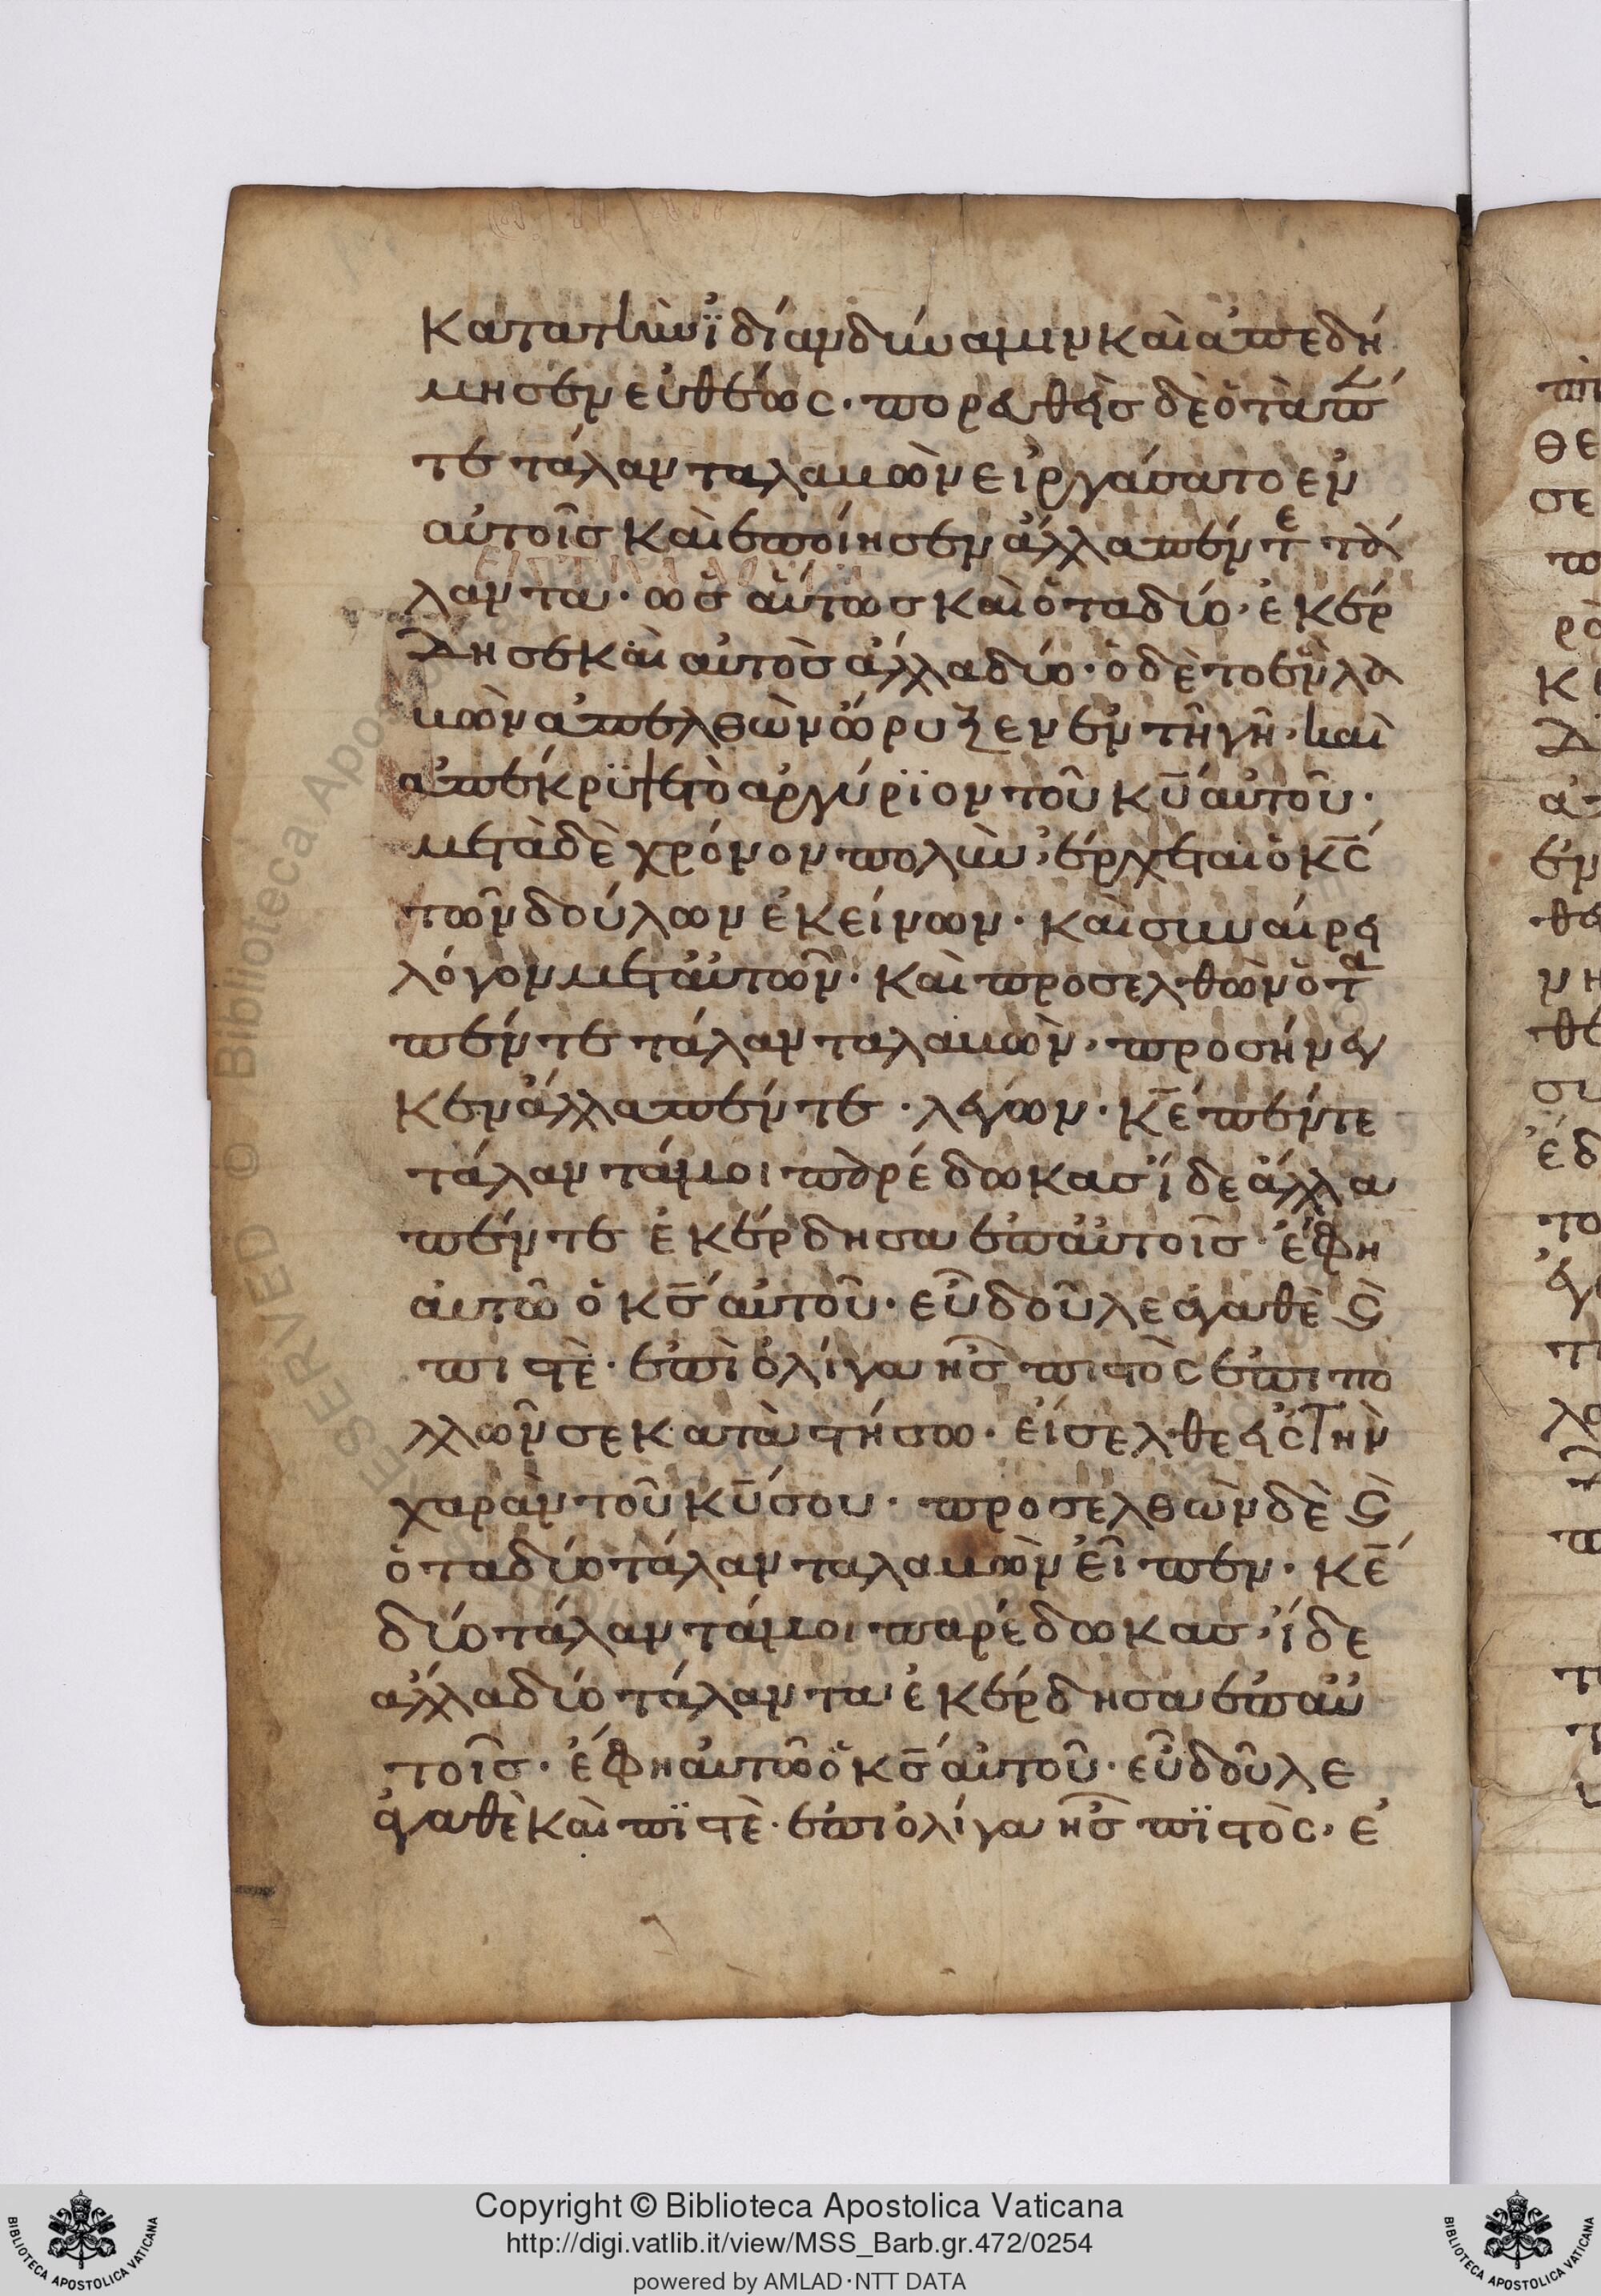 κατὰ τὴν ϊδίαν δύναμιν καὶ ἀπεδή
μησεν εὐθέως· πορευθεὶς δὲ ὁ τὰ πέν
τε τάλαντα λαμὼν εἰργάσατο ἐν
αὐτοῖς καὶ ἐποίησεν ἄλλα πέντε τά
λαντα· ὡσ αύτως καὶ ὁ τα δύο, ἐκέρ
δησε καὶ αὐτὸς ἄλλα δύο· ὁ δὲ το ἓν λα
μὼν ἀπελθὼν ὤρυξεν ἐν τῆ γῆ, καὶ
ἀπέκρϋψε τὸ ἀργύρϊον τοῦ κ̅υ̅ αὐτοῦ·
μετὰ δὲ χρόνον πολὺν, ἔρχεται ὁ κ̅ς̅
τῶν δούλων ἐκείνων· καὶ συναίρει
λόγον μετ αὐτῶν· καὶ προσελθὼν ὁ τα
πέντε τάλαντα λαμὼν, προσήνεγ
κεν ἄλλα πέντε· λέγων· κ̅ε̅ πέντε
τάλαντά μοι παρέδωκασ ἴδε ἄλλα
πέντε ἐκέρδησα ἐπ αὐτοῖς· ἔφη
αὐτῶ ὁ κ̅ς̅ αὐτοῦ· εὖ δοῦλε ἀγαθὲ ϛ̀
πιστὲ· ἐπὶ ὀλίγα ἦς πιστὸς ἐπι πο
λλῶν σε καταστήσω· εἴσελθε εἰς τὴν
χαρὰν τοῦ κ̅υ̅ σου· προσελθὼν δὲ ϛ̀
ὁ τα δύο τάλαντα λαμὼν εἶπεν· κ̅ε̅
δύο τάλαντά μοι παρέδωκας, ἴδε
ἄλλα δύο τάλαντα ἐκέρδησα ἐπ αὐ
τοῖς· ἔφη αὐτῶ ὁ κ̅ς̅ αὐτοῦ· εὖ δοῦλε
ἀγαθὲ καὶ πϊστὲ· ἐπι ὀλίγα ἦς πϊστὸς, ἐ
Copyright © Biblioteca Apostolica Vaticana
http://digi.vatlib.it/view/MSS_Barb.gr.472/0254
powered by AMLAD·NTT DATA
BIBLIOTECA APOSTOLICA VATICANA
BIBLIOTECA APOSTOLICA VATICANA